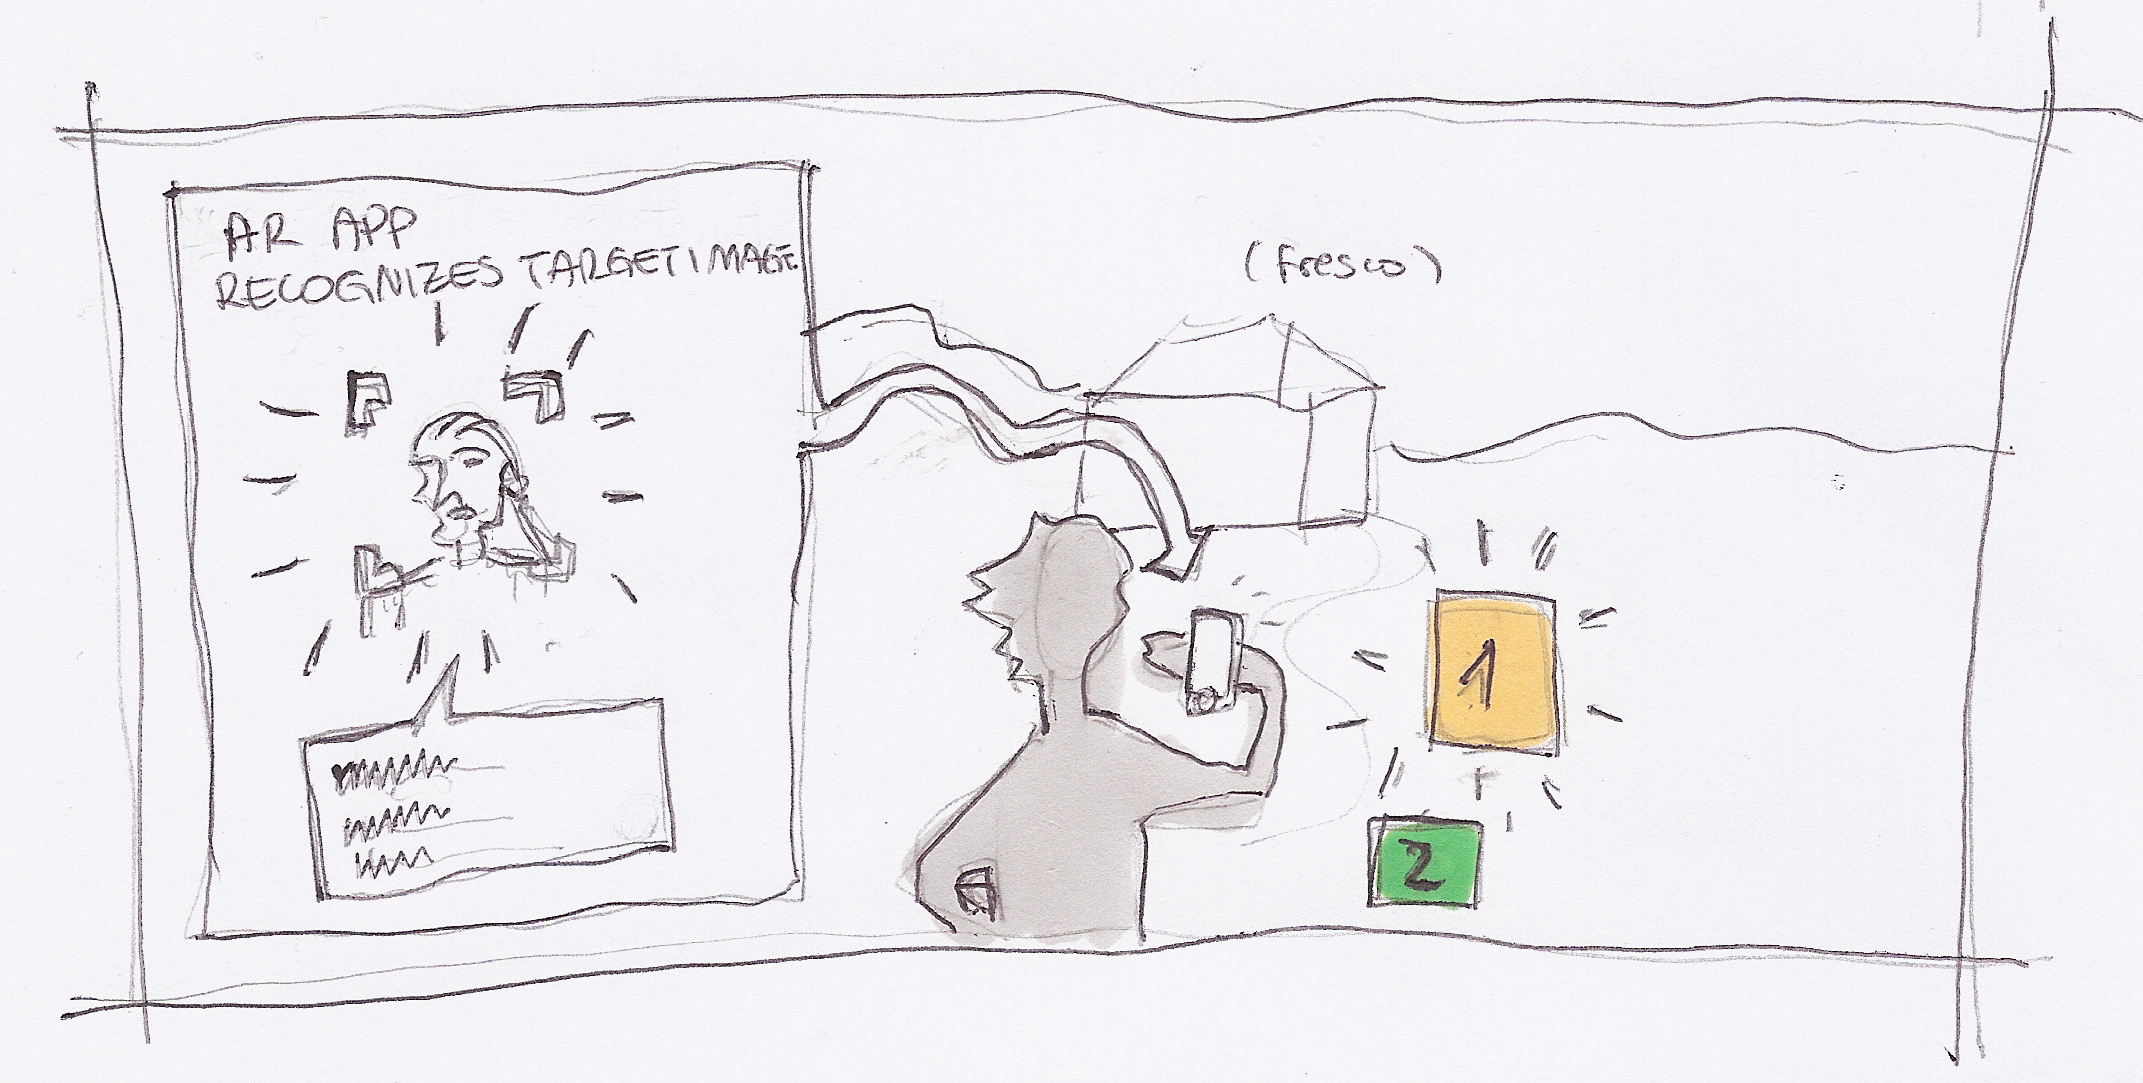 AR APP
RECOGNIZES TARGETIMAGE
(fresco)
1
2